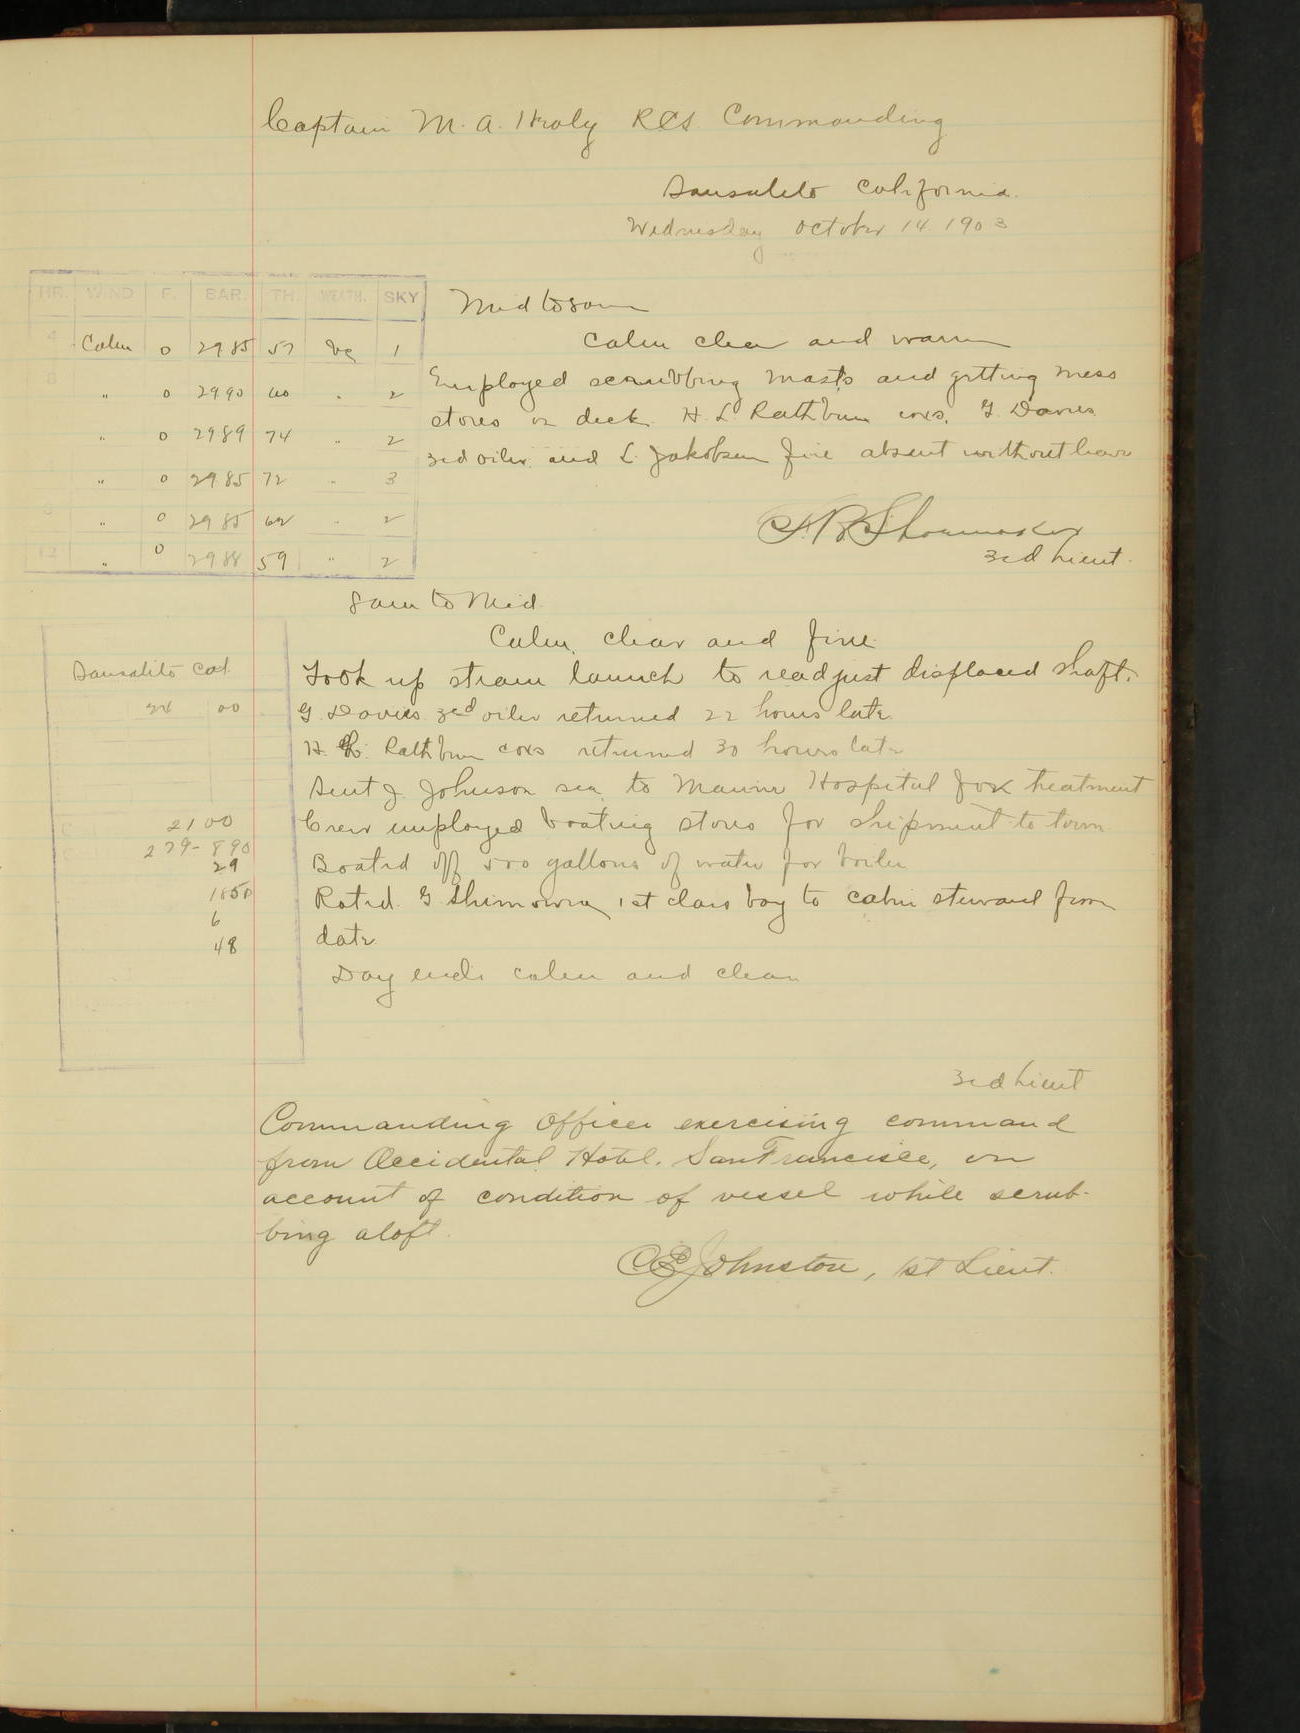 Captain M. A. Healy RCS Commanding
Sausalito California.
Wednesday October 14 1903
HR. WIND F. BAR. TH. WEATH. SKY
4 Calm 0 2985 57 bc 1
8 " 0 2990 60 " 2
" 0 2989 74 " 2
" 0 2985 72 " 3
8 " 0 2985 62 " 2
12 " 0 2988 59 " 2
Mid to 8am
Calm clear and warm
Employed scrubbing masts and getting mess
stores on deck. H. L Rathbun coxs. G. Davies
3rd oiler and L. Jakobsen fire absent without leave
3rd Lieut.
8am to Mid.
Calm, clear and fine
Took up steam launch to readjust displaced shaft.
G. Davies 3rd oiler returned 22 hours late
H. L. Rathbun coxs returned 30 hours late
Sent J. Johnson sea. to Marine Hospital for treatment
Crew employed boating stores for shipment to town
Boated off 500 gallons of water for boiler
Rated G Shimowra, 1st class boy to cabin steward from
date
Day ends calm and clear
Sausalito Cal
24 00
2100
279-890
29
1850
6
48
3rd Lieut
Commanding Officer exercising command
from Occidental Hotel, San Francisco, on
account of condition of vessel while scrub-
bing aloft.
C E Johnston, 1st Lieut.